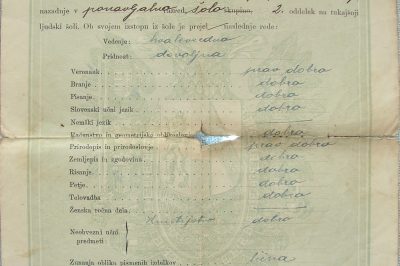 nazadnje v ponavljalno šolo skupino, 2. oddelek na tukajšnji
ljudski šoli. Ob svojem izstopu iz šole je prejel naslednje rede:
Vedenje: hvalevredno
Pridnost: dovoljna
Veronauk prav dobro
Branje dobro
Pisanje dobro
Slovenski učni jezik dobro
Nemški jezik
Računstvo in geometrijsko oblikoslovje dobro
Prirodopis in prirodoslovje prav dobro
Zemljepis in zgodovina dobro
Risanje dobro
Petje dobro
Telovadba dobro
Ženska ročna dela
Neobvezni učni predmeti dobro
Zunanja oblika pismenih izdelkov lična